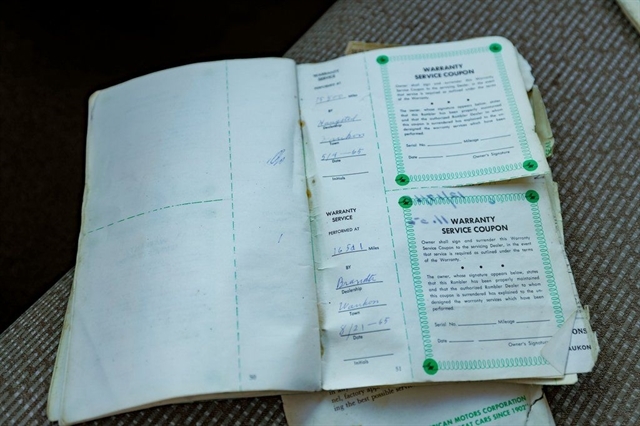 WARRANTY
SERVICE COUPON
Owner shall sign and surrender this Warranty
Service Coupon to the servicing Dealer, in the event
that service is required as outlined under the terms
of the Warranty.
The owner, whose signature appears below, states
that this Rambler has been properly maintained
and that the authorized Rambler Dealer to whom
this coupon is surrendered has explained to the owner
designated the warranty services which have been
performed.
Serial No. Mileage
Date Owner's Signature
WARRANTY
SERVICE
PERFORMED AT
Miles
BY
Dealership
Town
5/4-65
Date
Initials
WARRANTY
SERVICE
PERFORMED AT
16521 Miles
BY
Brandt
Dealership
Waukon
Town
8/21-65
Date
Initials
51
WARRANTY
SERVICE COUPON
Owner shall sign and surrender this Warranty
Service Coupon to the servicing Dealer, in the event
that service is required as outlined under the terms
of the Warranty.
The owner, whose signature appears below, states
that this Rambler has been properly maintained
and that the authorized Rambler Dealer to whom
this coupon is surrendered has explained to the
designated the warranty services which have been
performed.
Serial No. Mileage
Date
Owner's Signature
50
AUKON
nel, factory
ing the best possible
ICAN MOTORS CORPORATION
AT CARS SINCE 1902